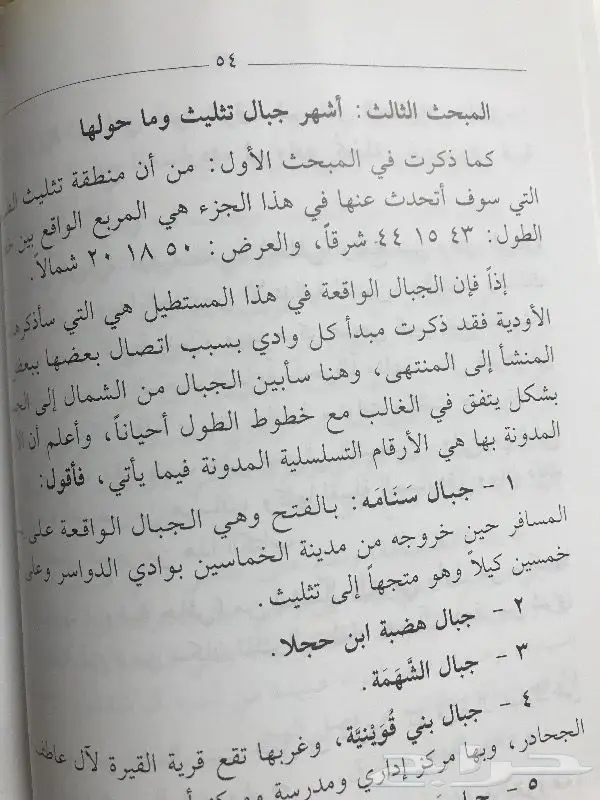 ٥٤
المبحث الثالث: أشهر جبال تثليث وما حولها
كما ذكرت في المبحث الأول: من أن منطقة تثليث
التي سوف أتحدث عنها في هذا الجزء هي المربع الواقع بين
الطول: ٤٣ ١٥ ٤٤ شرقاً، والعرض: ٥٠ ١٨ ٢٠ شمالاً.
إذاً فإن الجبال الواقعة في هذا المستطيل هي التي سأذكرها
الأودية فقد ذكرت مبدأ كل وادي بسبب اتصال بعضها ببعض
المنشأ إلى المنتهى، وهنا سأبين الجبال من الشمال إلى
بشكل يتفق في الغالب مع خطوط الطول أحياناً، وأعلم أن
المدونة بها هي الأرقام التسلسلية المدونة فيما يأتي، فأقول:
١ - جبال سَنَامَه: بالفتح وهي الجبال الواقعة على
المسافر حين خروجه من مدينة الخماسين بوادي الدواسر وعلى
خمسين كيلاً وهو متجهاً إلى تثليث.
٢ - جبال هضبة ابن حجلا.
٣ - جبال الشَّهَمَة.
٤ - جبال بني قُوَيْنيَّة، وغربها تقع قرية القيرة لآل عاطف
الجحادر، وبها مركز إداري ومدرسة ومركز
٥ -
حراج